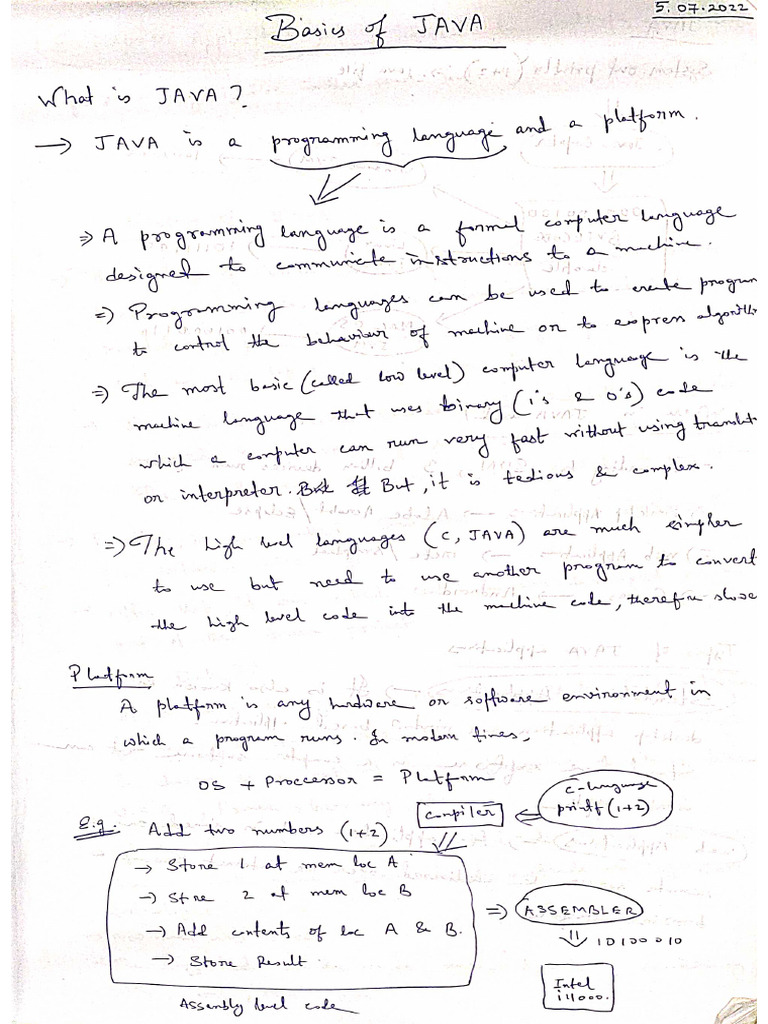 5.07.2022
Basics of JAVA
What is JAVA?
→ JAVA is a programming language and a platform.
⇒ A programming language is a formal computer language
designed to communicate instructions to a machine.
⇒ Programming languages can be used to create program
to control the behaviour of machine or to express algorith
⇒ The most basic (called low level) computer language is the
machine language that uses binary (1's & 0's) code
which a computer can run very fast without using translat
or interpreter. But, it is tedious & complex.
⇒ The high level languages (C, JAVA) are much simpler
to use but need to use another program to convert
the high level code into the machine code, therefore slowe
Platform
A platform is any hardware or software environment in
which a program runs. In modern times,
OS + Proccessor = Platform
C-language
printf (1+2)
compiler
E.g. Add two numbers (1+2)
→ Store 1 at mem loc A
→ Store 2 at mem loc B
→ Add contents of loc A & B.
→ Store Result
⇒ ASSEMBLER
10100010
Intel
Assembly level code